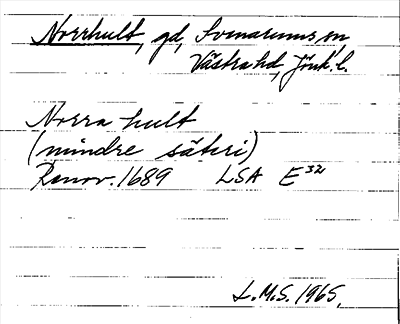 Norrhult, gd, Svenarums sn,
Västra hd, Jönk. l.
Norra hult
(mindre säteri)
Renov. 1689 LSA E³²
L.M.S. 1965.